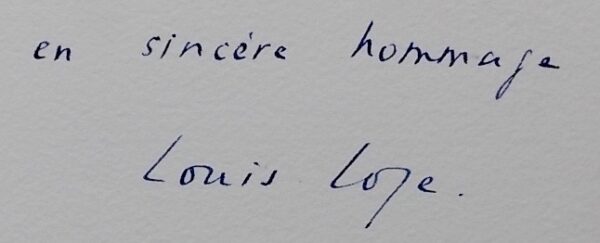 en sincère hommage
Louis Loze.